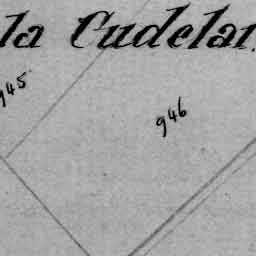 la Cudelar
945
946